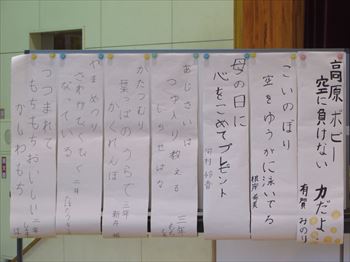 高原 ポピー
空に負けない 力だよ
有賀 みのり
こいのぼり
空をゆうがに泳いでる
根岸
母の日に
心をこめてプレゼント
あじさいは
つゆ入り教える
しらせばな
三年
かたつむり
葉っぱのうらで
かくれんぼ
三年
やまめつり
さわがしくなく
なっている
二年
つつまれて
もちもちおいしい
かしわもち
二年